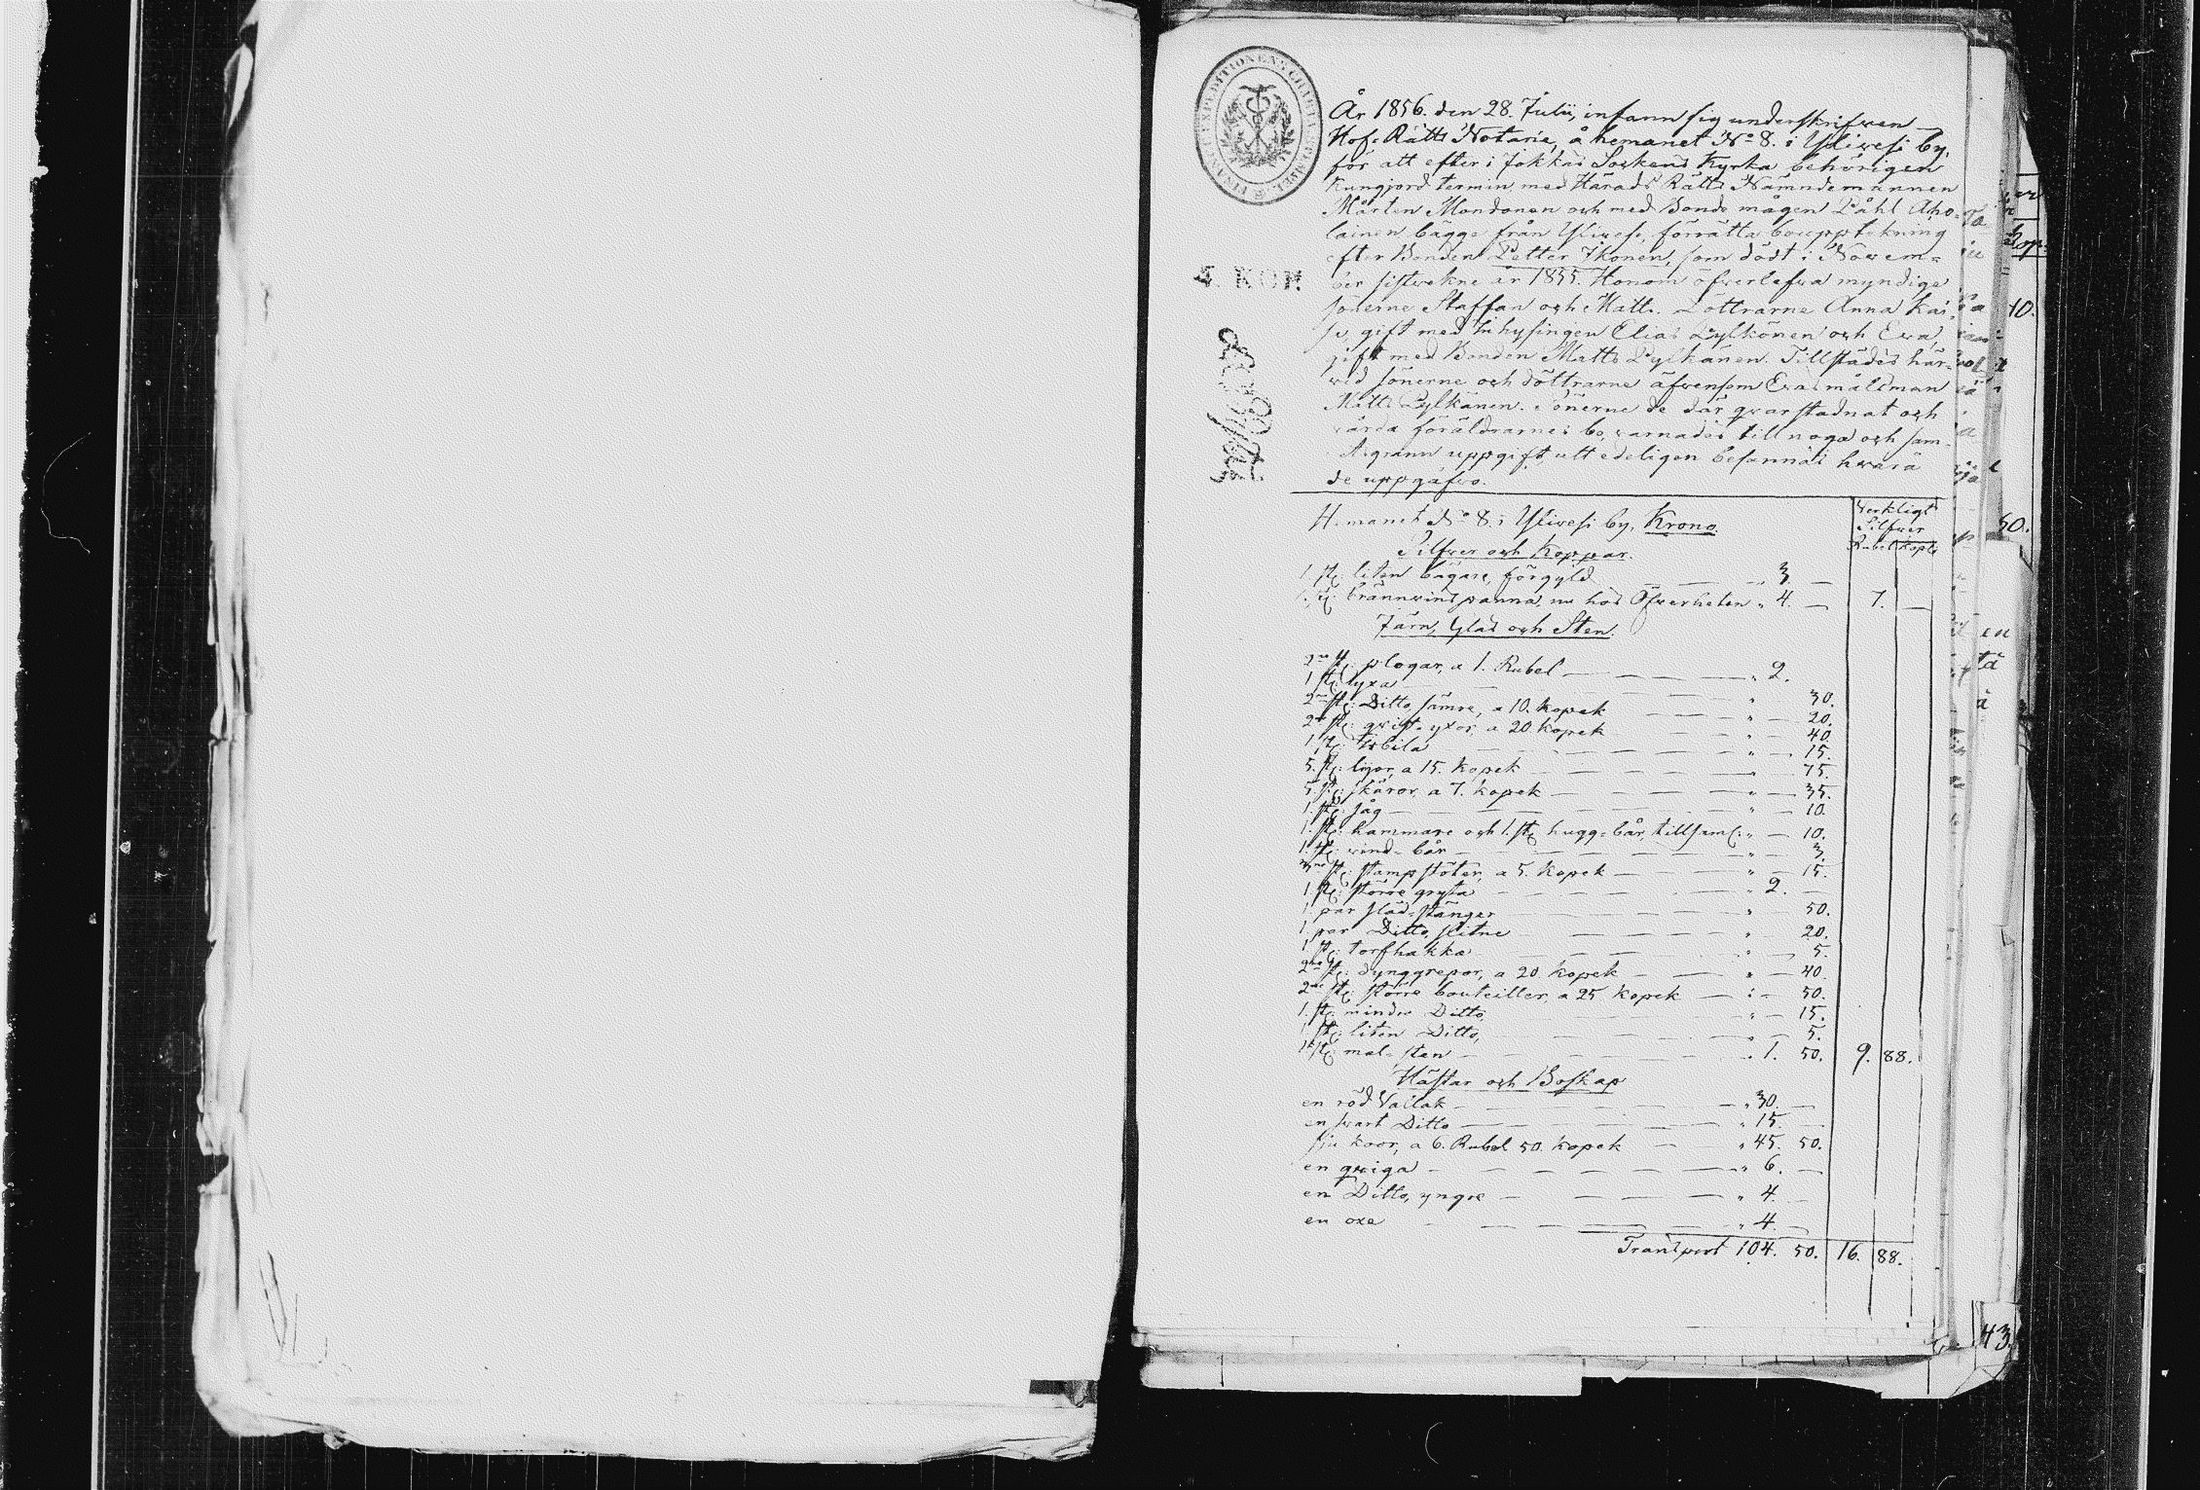 År 1856. den 28. Julii, infann sig underskrifven
Hof-Rätts Notarie, å hemanet No 8. i Ylivesi by,
för att efter i Jokkas Sockens Kyrka behörigen
kungjord termin, med Härads Rätts Nämndemännen
Mårten Mondonen och med Bonde mågen Påhl Aho-
lainen bägge från Ylivesi, förrätta bouppteckning
efter Bonden Petter Ikonen, som dödt i Novem-
ber sistvekne år 1855. Honom öfverlefva myndige
sönerne Staffan och Matts. Döttrarne Anna Kai-
sa, gift med Inhysingen Elias Pylkönen och Eva,
gift med Bonden Matts Pylkänen. Tillstädes här-
vid sönerne och döttrarne äfvensom Evas målsman
Matts Pylkänen. Sönerne de där qvarstadnat och
vårda föräldrarnes bo, varnades till noga och sam-
vetsgrann uppgift utt edeligen befannas hvarå
de uppgåfvo.
4. KOP.
Hemanet No 8. i Ylivesi by, Krono.
Verkligt
Silfver
Rubel Kopk
Silfver och Koppar.
1 st: liten bägare, förgyld — — — " 3. —
1 st: brännvins panna, nu hos Öfverheten " 4. — 7. —
Järn, Glas och Sten.
2ne st: plogar, a 1. Rubel — — — " 2.
1 st: yxa — — — " — 30.
2ne st: Ditto, sämre, a 10. kopek — — " — 20.
2ne st: qvist-yxor, a 20. kopek — — " — 40.
1 st: bila — — — " — 15.
5. st: lijor, a 15. kopek — — — " — 75.
5. st: skäror, a 7. kopek — — — " — 35.
1 st: såg — — — " — 10.
1. st: hammare och 1. st: hugg-bår, tillsam: " — 10.
1. st: vind-bår — — — " — 3.
3ne st: stampstötar, a 5. kopek — — " — 15.
1. st: större gryta — — — " 2. —
1 par släd-stänger — — — " 50.
1. par Ditto, slitne — — — " 20.
1 st: torfhakka — — — " — 5.
2ne st: dynggrepor, a 20 kopek — — " — 40.
2ne st: större bouteiller, a 25 kopek — : — 50.
1. st: mindre Ditto, — — " — 15.
1 st: liten Ditto, — — — " 5.
1 st: mal-sten — — — " 1. 50. 9. 88.
Hästar och Boskap
en röd Vallak — — — " 30. —
en svart Ditto — — — " 15. —
sju koor, a 6. Rubel 50. kopek — " 45. 50.
en qviga — — — " 6. —
en Ditto, yngre — — — " 4. —
en oxe — — — " 4. —
Transport 104. 50. 16. 88.
10.
50.
43.